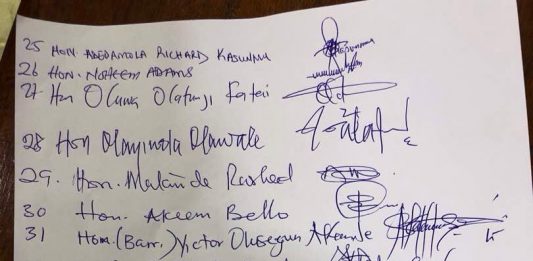 25 HON. ADEDAMOLA RICHARD KASUNMU
26 Hon. Noheem ADAMS
27 Hon Oluwa Olatunji Fatai
28 Hon Olayinola Olawale
29. Hon. Makinde Rasheed
30 Hon. Akeem Bello
31 Hon. (Barr.) Victor Olusegun Akande